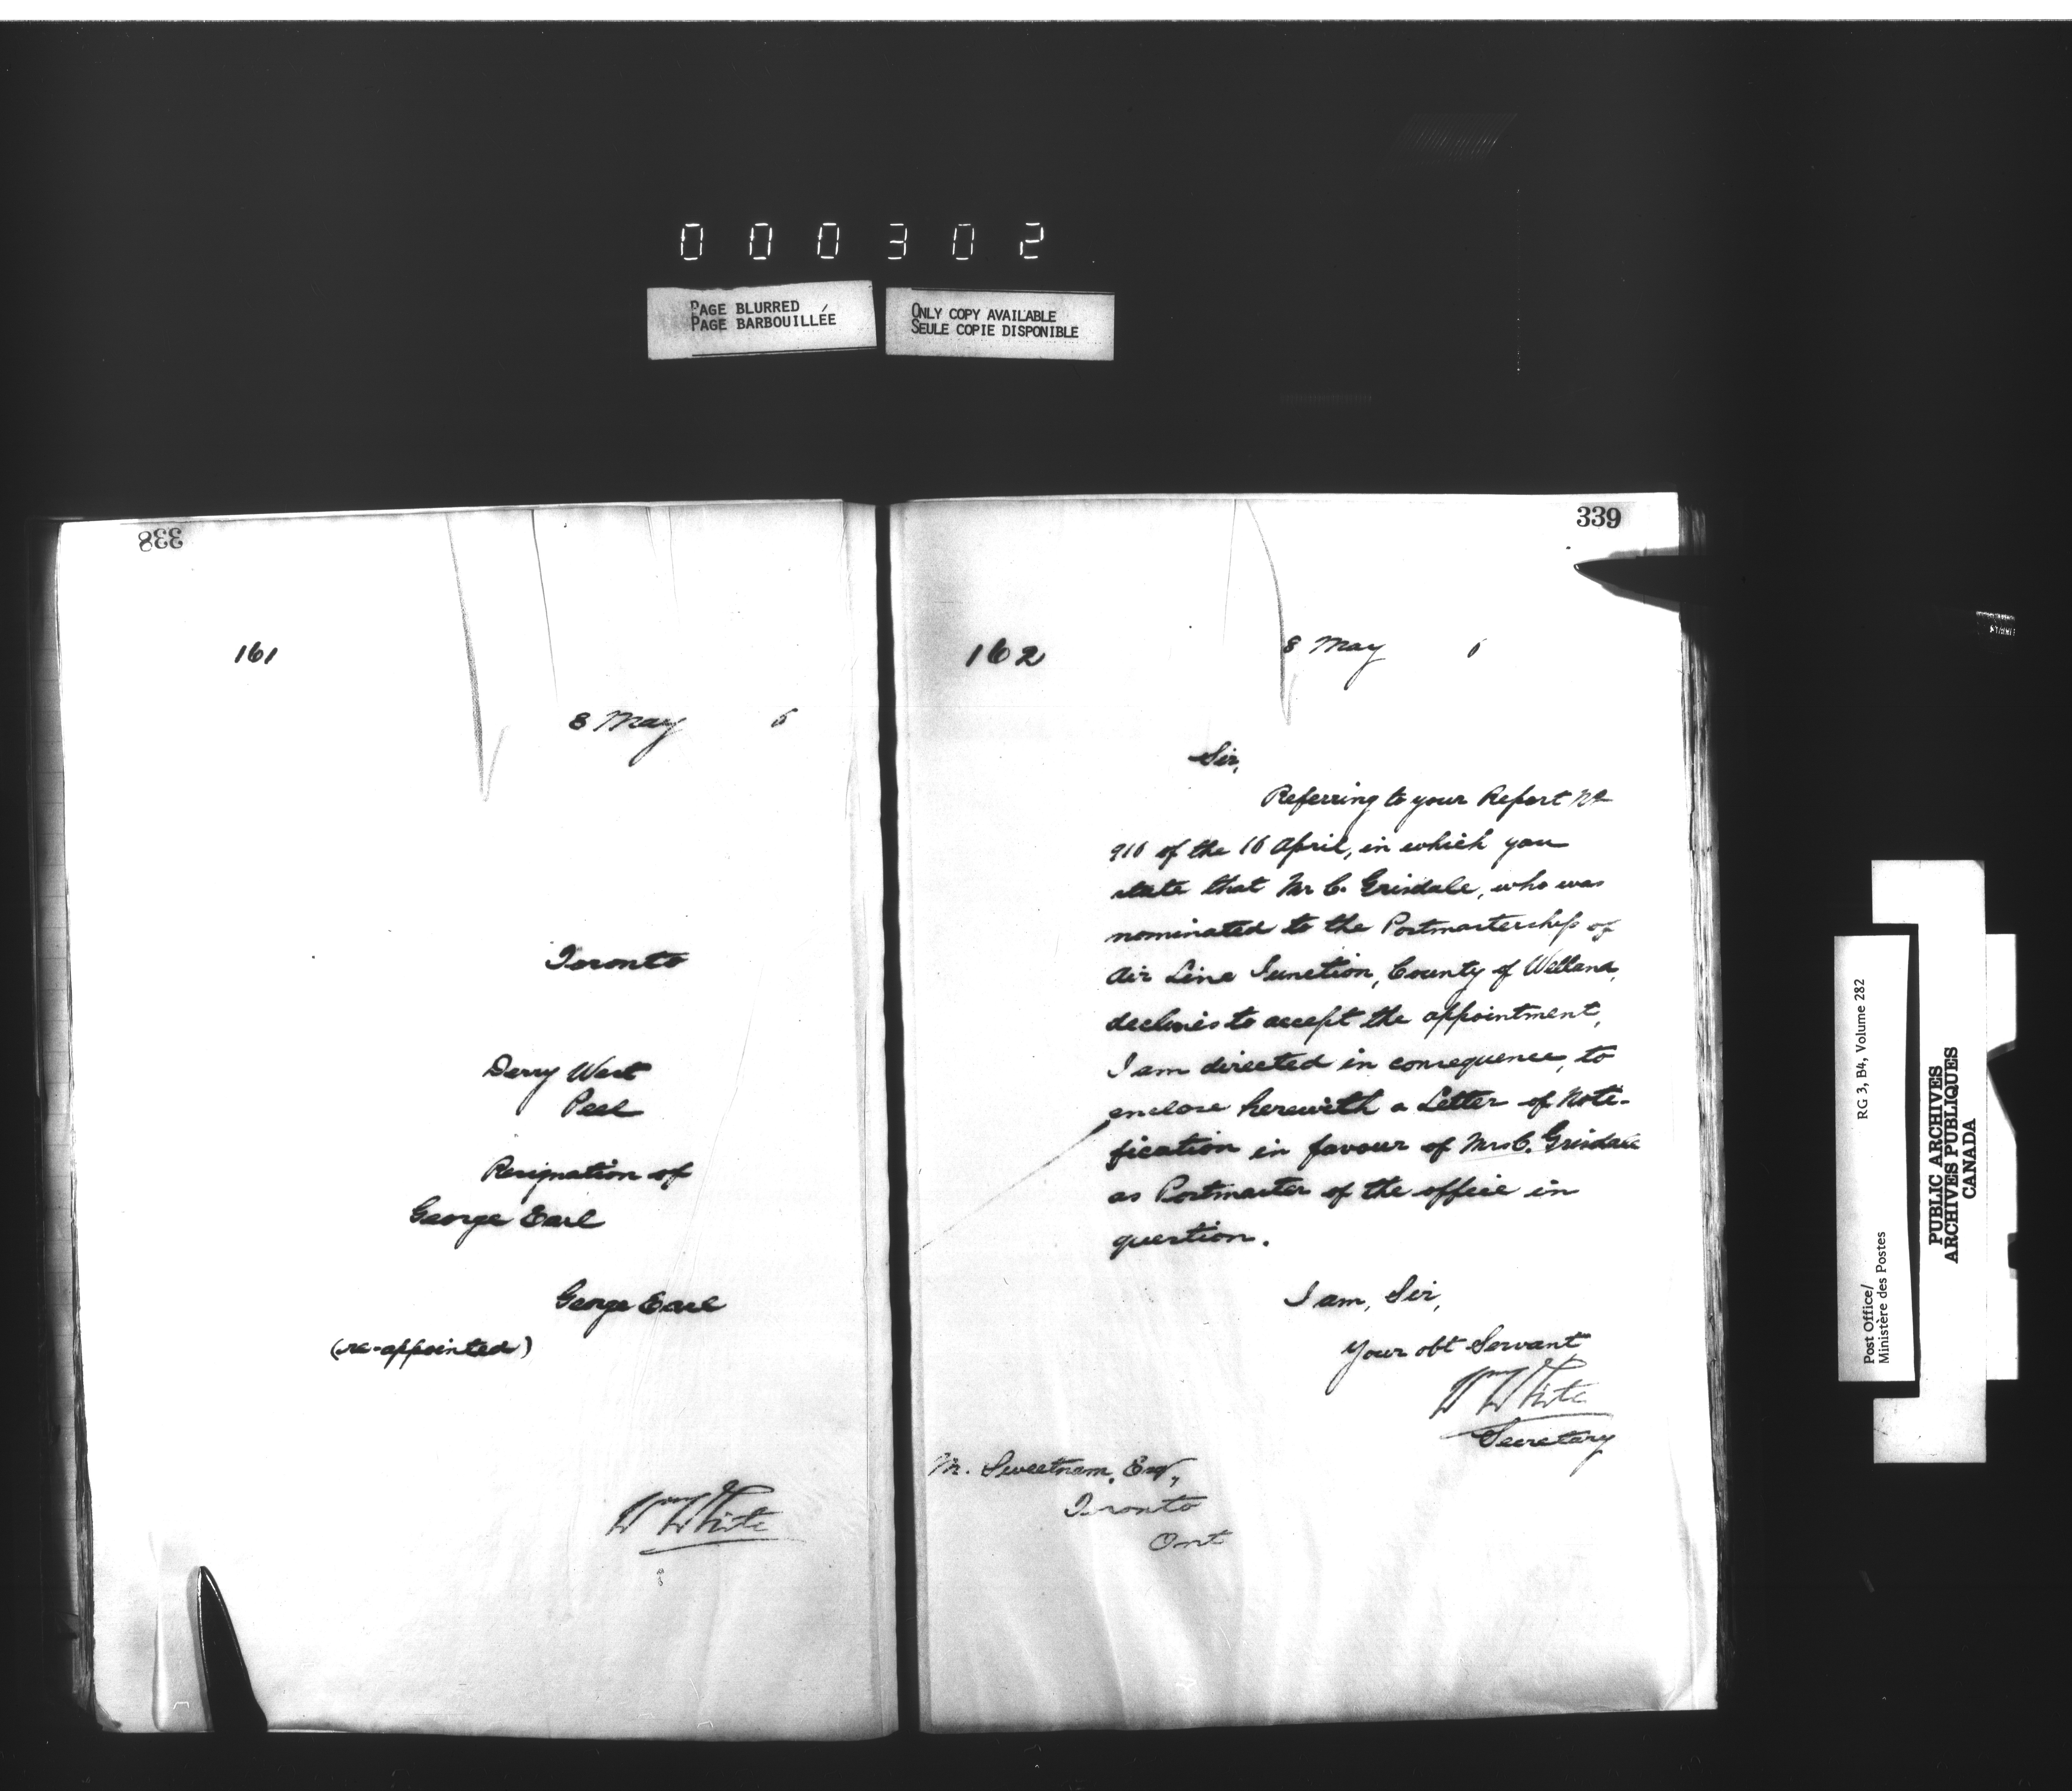 000302
PAGE BLURRED
PAGE BARBOUILLÉE
ONLY COPY AVAILABLE
SEULE COPIE DISPONIBLE
338
161
8 May 6
Toronto
Derry West
Peel
Resignation of
George Earl
George Earl
(re-appointed)
Wm White
339
162
8 May 6
Sir,
Referring to your Report No
916 of the 16 April, in which you
state that Mr C. Grisdale, who was
nominated to the Postmastership of
Air Line Junction, County of Welland,
declines to accept the appointment,
I am directed in consequence, to
enclose herewith a Letter of Noti-
fication in favour of Mrs C. Grisdale
as Postmaster of the office in
question.
I am, Sir,
Your obt Servant
Wm White
Secretary
M. Sweetnam, Esq,
Toronto
Ont
RG 3, B4, Volume 282
Post Office/
Ministère des Postes
PUBLIC ARCHIVES
ARCHIVES PUBLIQUES
CANADA